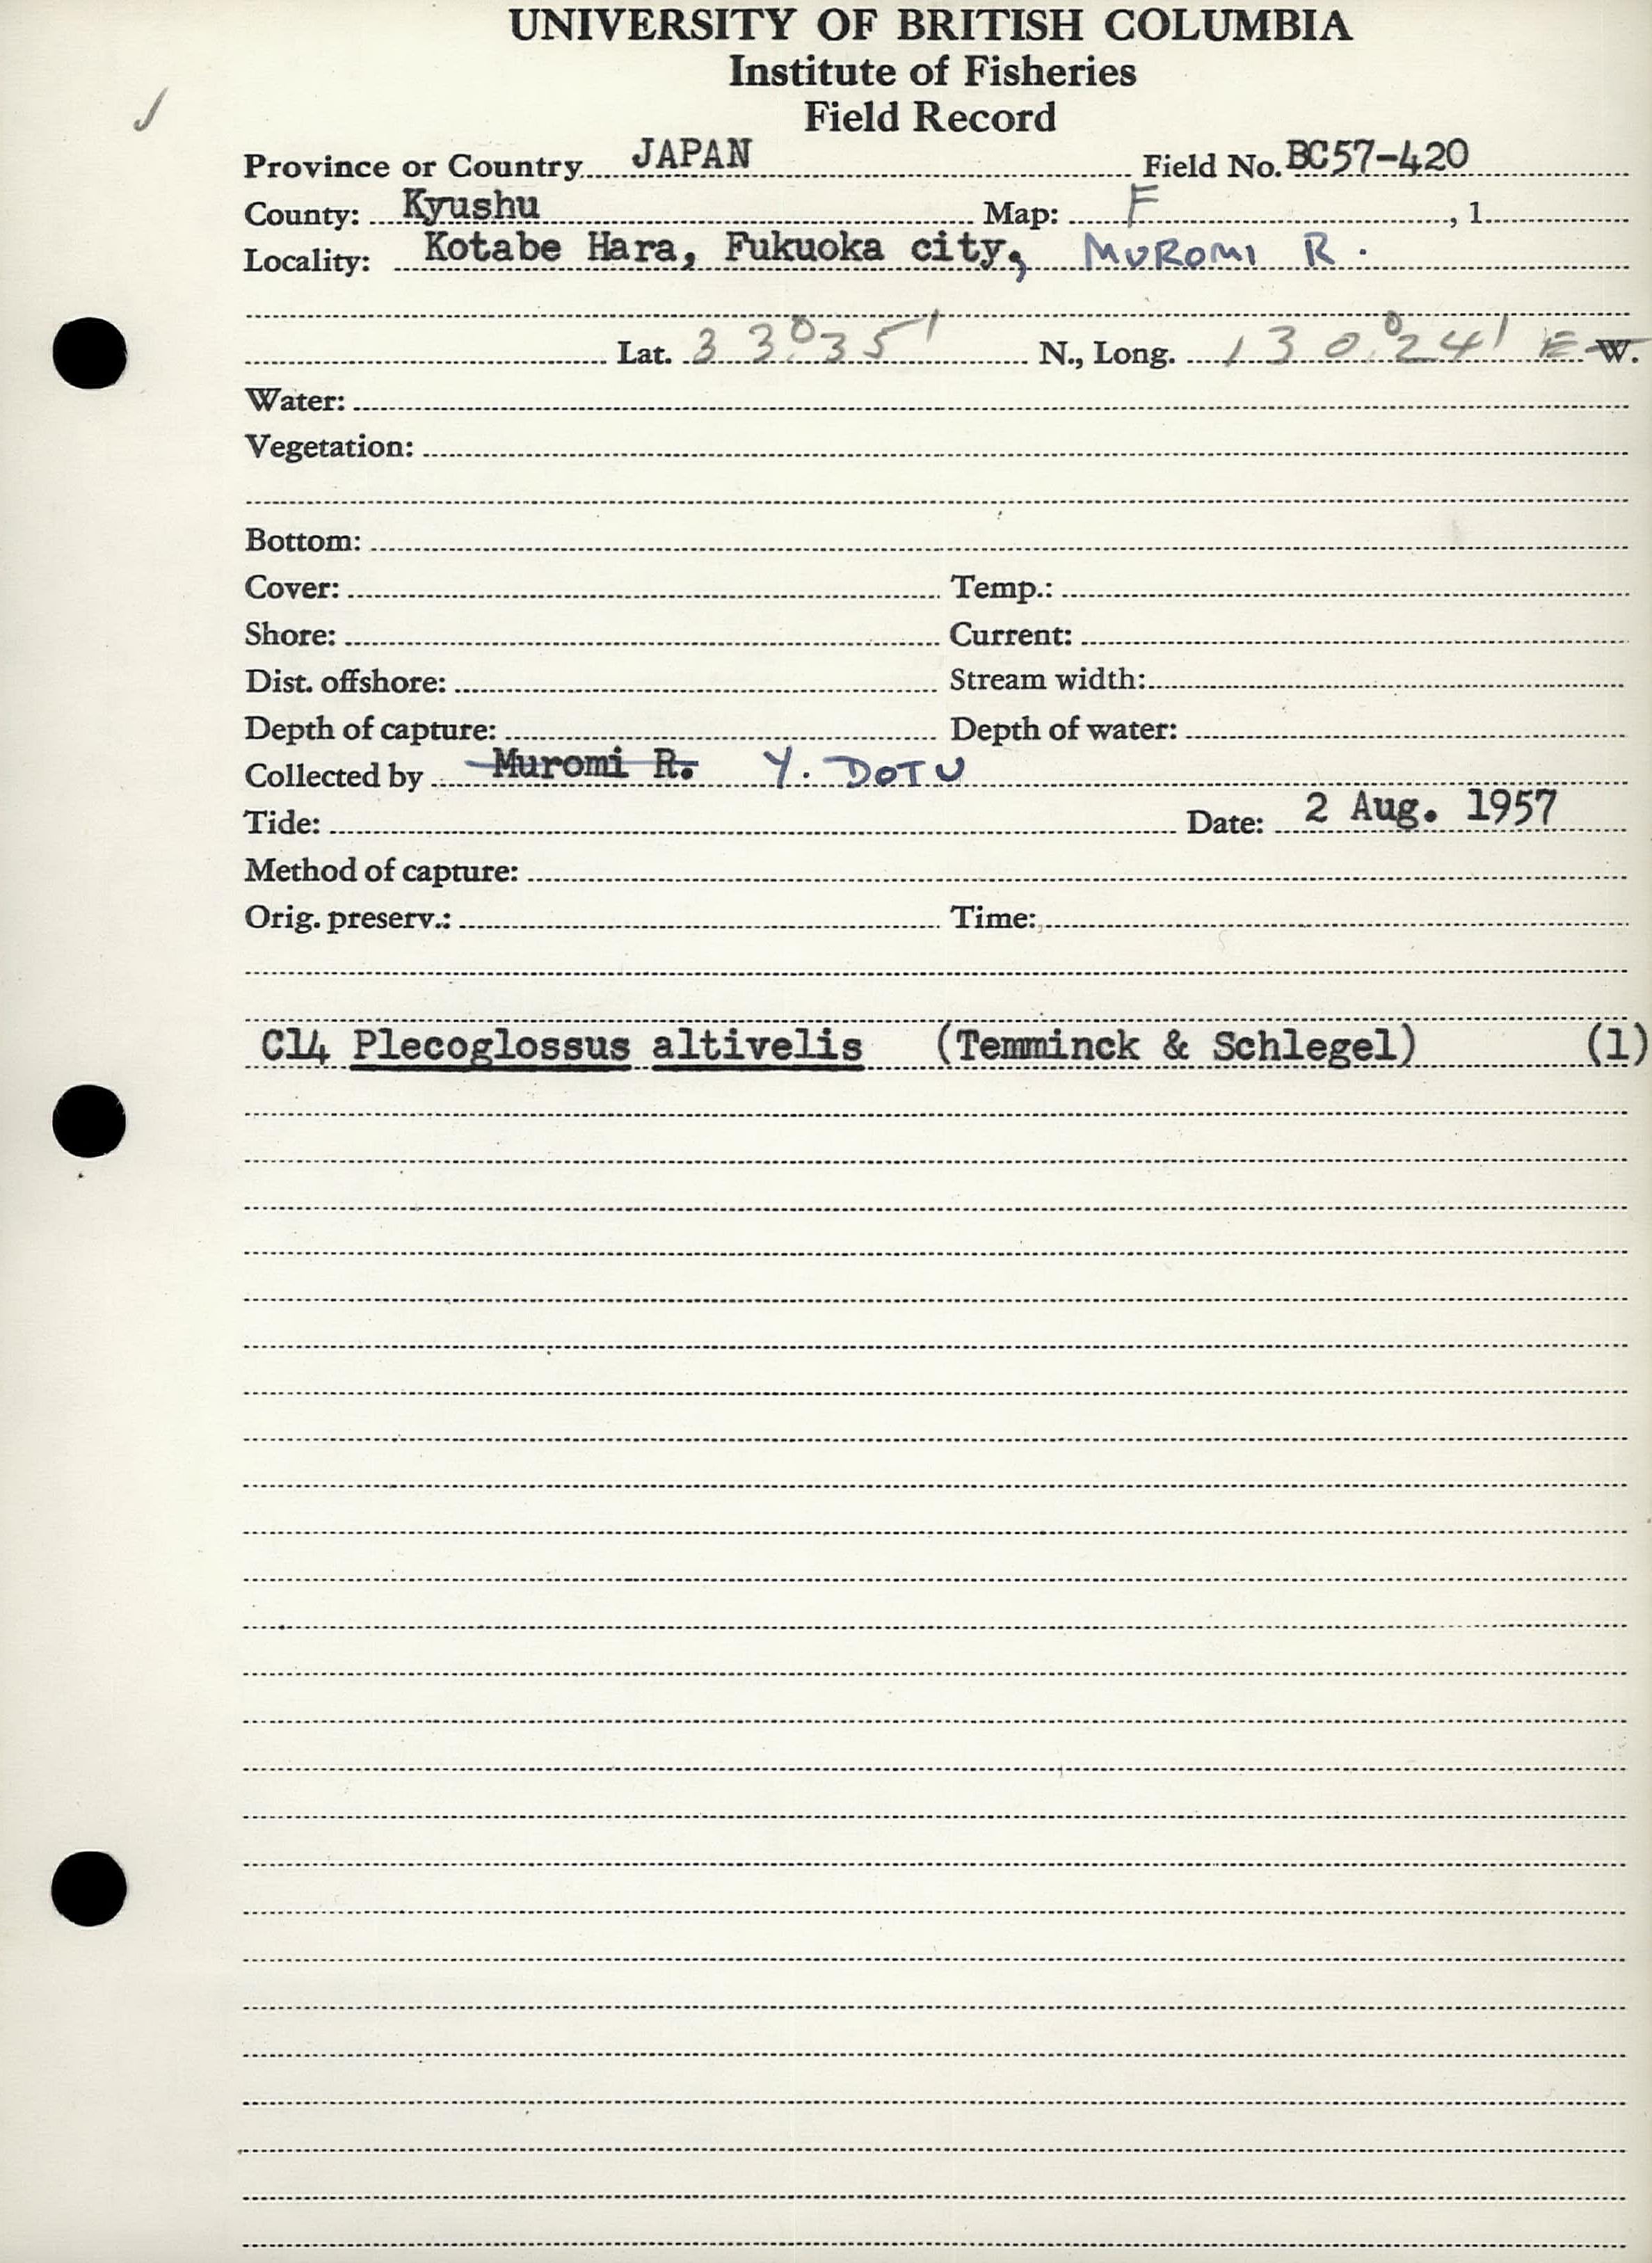 UNIVERSITY OF BRITISH COLUMBIA
Institute of Fisheries
Field Record
Province or Country JAPAN Field No. BC57-420
County: Kyushu Map: F , 1
Locality: Kotabe Hara, Fukuoka city, MUROMI R.
Lat. 33°35' N., Long. 130°24' E W.
Water:
Vegetation:
Bottom:
Cover: Temp.:
Shore: Current:
Dist. offshore: Stream width:
Depth of capture: Depth of water:
Collected by Muromi R. Y. DOTU
Tide: Date: 2 Aug. 1957
Method of capture:
Orig. preserv.: Time:
C14 Plecoglossus altivelis (Temminck & Schlegel) (1)